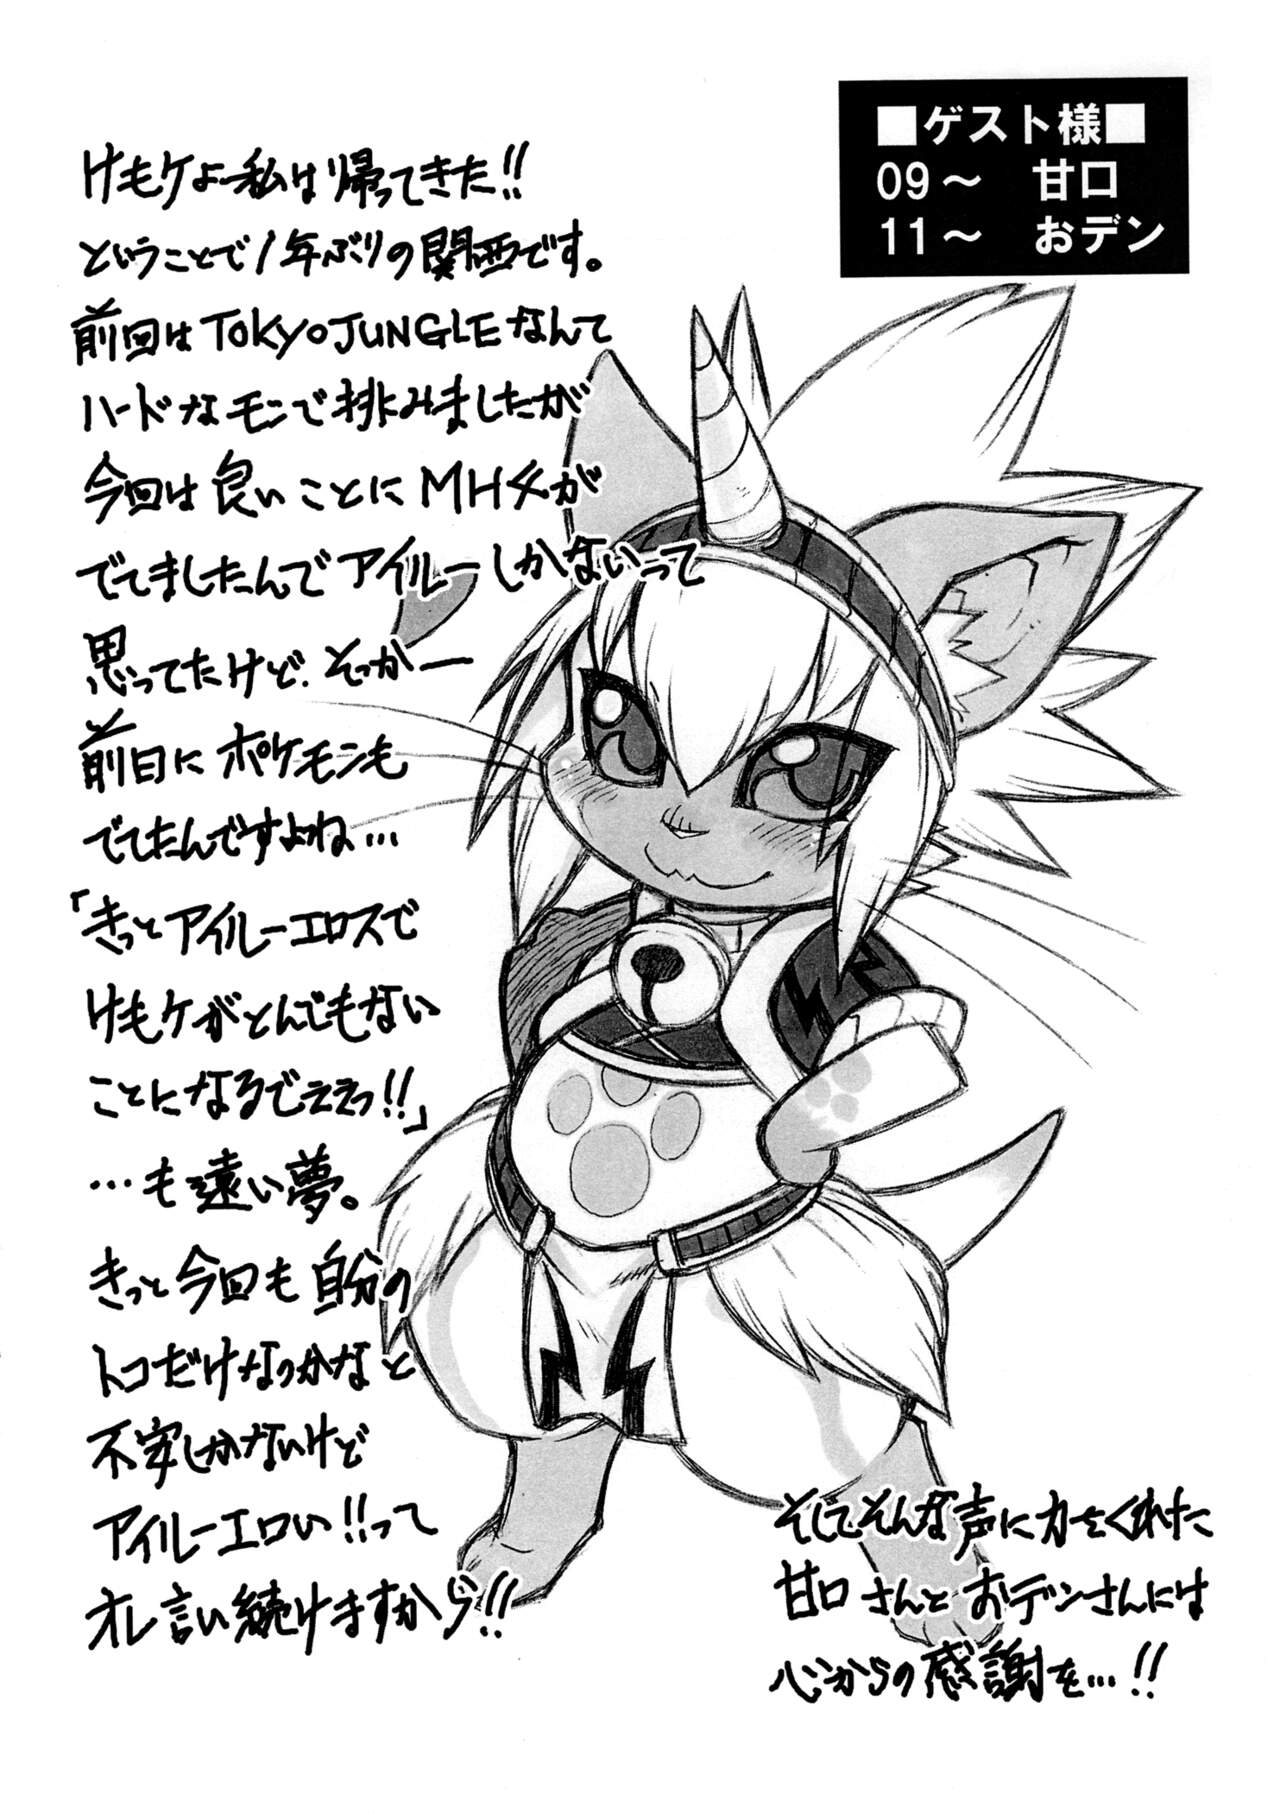 ■ゲスト様■
09～ 甘口
11～ おデン
けもケよー私は帰ってきた!!
ということで1年ぶりの関西です。
前回はTOKYOJUNGLEなんて
ハードなモンで挑みましたが
今回は良いことにMH4が
でてましたんでアイルーしかないって
思ってたけど、そっかー
前日にポケモンも
でてたんですよね…
「きっとアイルーエロスで
けもケがとんでもない
ことになるでええっ!!」
…も遠い夢。
きっと今回も自分の
トコだけなっかなと
不安しかないけど
アイルーエロい!!って
オレ言い続けますから!!
そしてそんな声に力をくれた
甘口さんとおデンさんには
心からの感謝を…!!